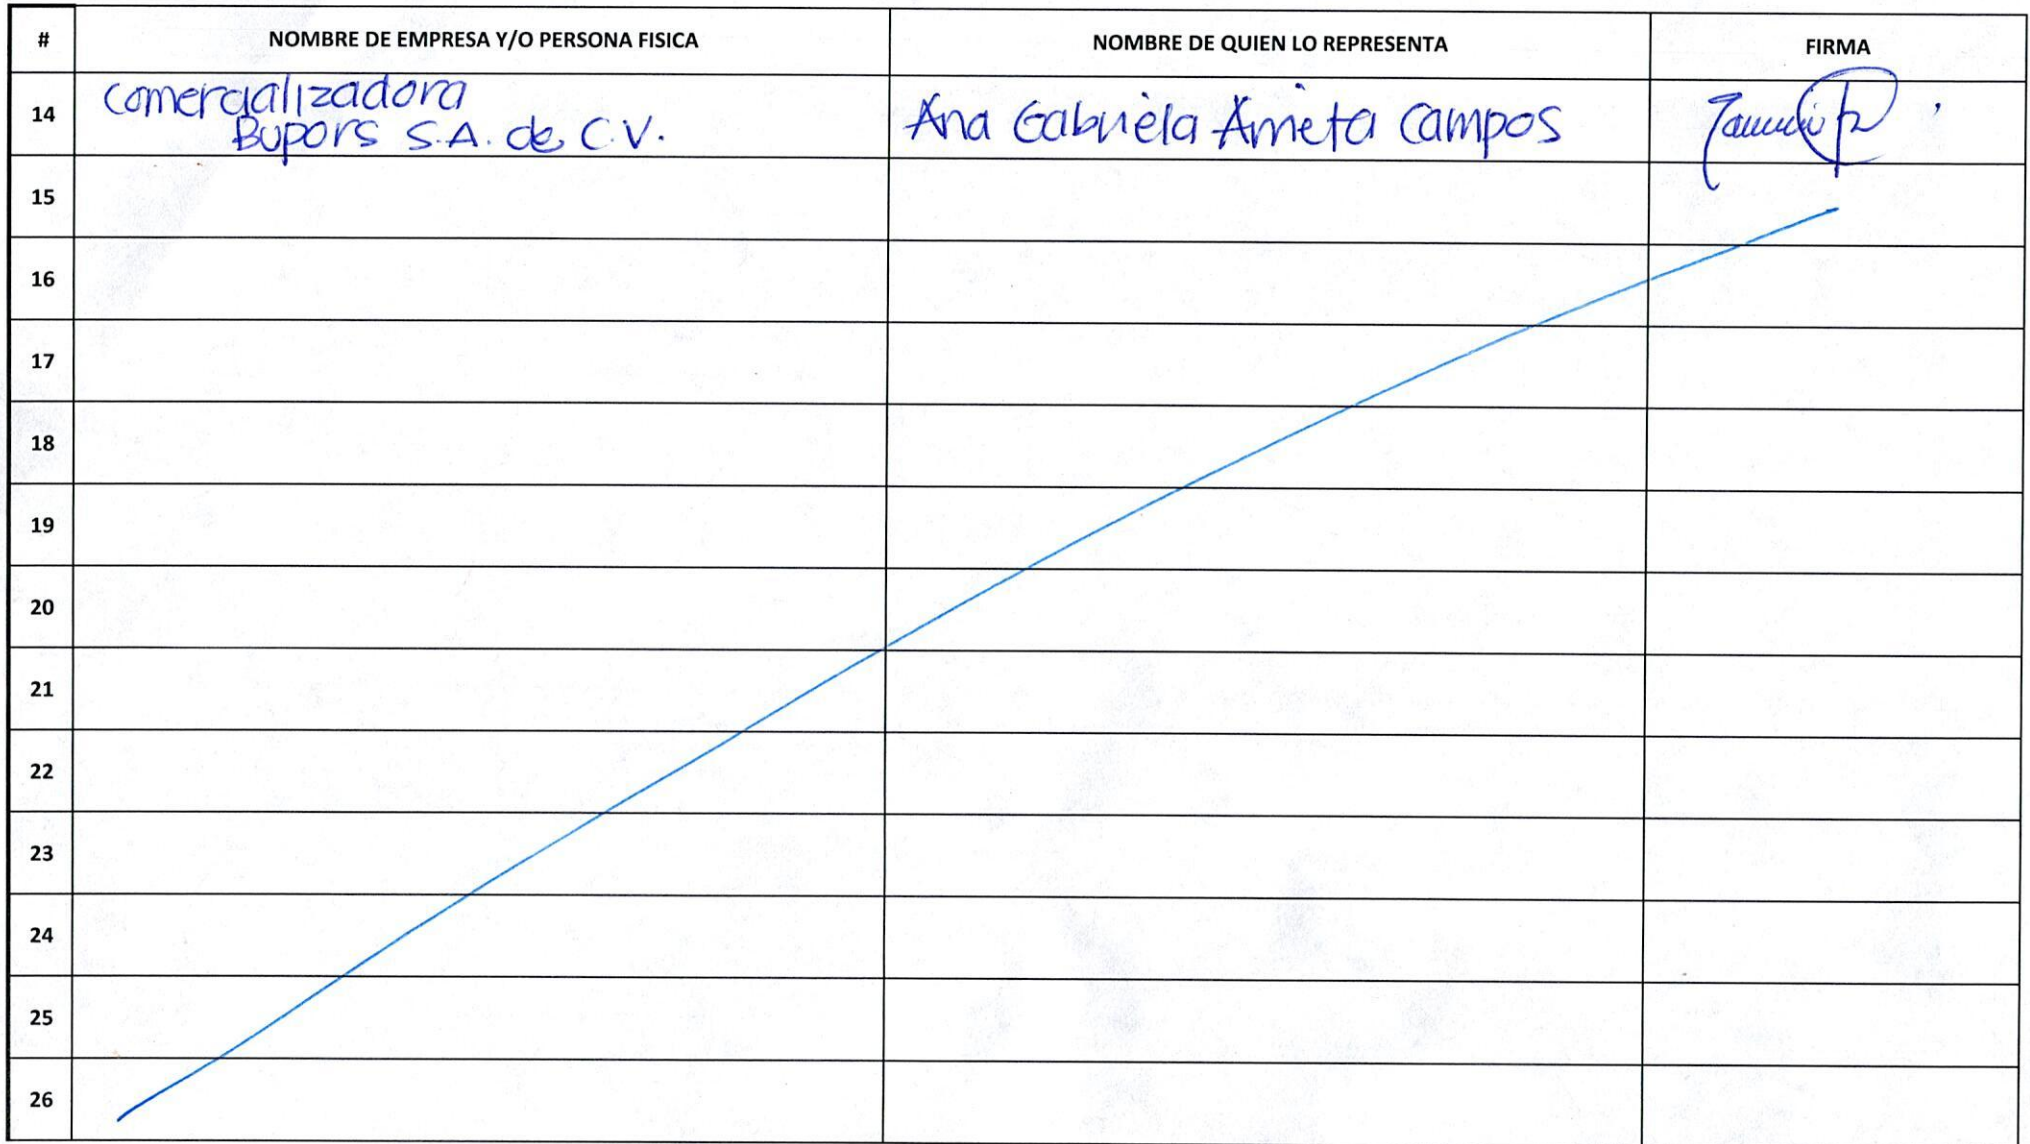 # NOMBRE DE EMPRESA Y/O PERSONA FISICA NOMBRE DE QUIEN LO REPRESENTA FIRMA
14 comercializadora
Bupors S.A. de C.V. Ana Gabriela Arrieta Campos
15
16
17
18
19
20
21
22
23
24
25
26